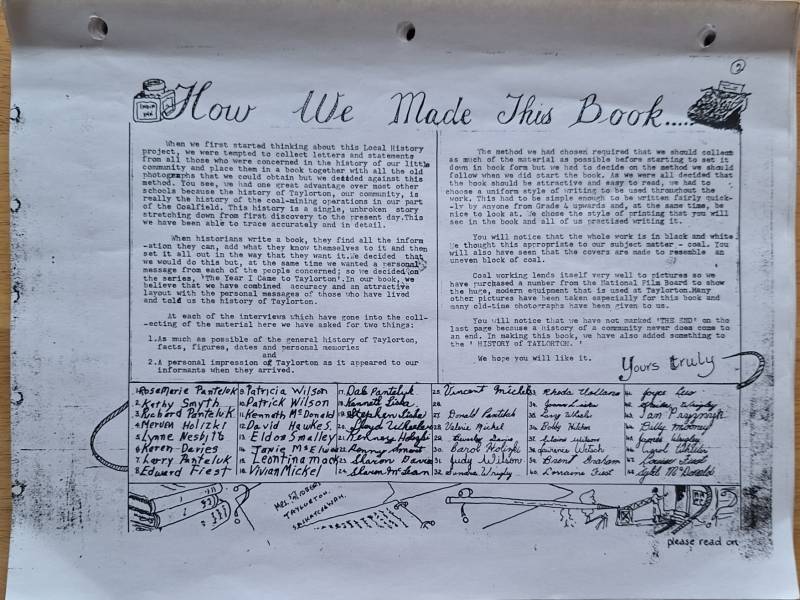 2
How We Made This Book....
When we first started thinking about this Local History
project, we were tempted to collect letters and statements
from all those who were concerned in the history of our little
community and place them in a book together with all the old
photographs that we could obtain but we decided against this
method. You see, we had one great advantage over most other
schools because the history of Taylorton, our community, is
really the history of the coal-mining operations in our part
of the Coalfield. This history is a single, unbroken story
stretching down from first discovery to the present day.This
we have been able to trace accurately and in detail.
When historians write a book, they find all the inform
-ation they can, add what they know themselves to it and then
set it all out in the way that they want it.We decided that
we would do this but, at the same time we wanted a personal
message from each of the people concerned; so we decided on
the series, 'The Year I Came to Taylorton'.In our book, we
believe that we have combined accuracy and an attractive
layout with the personal messages of those who have lived
and told us the history of Taylorton.
At each of the interviews which have gone into the coll-
-ecting of the material here we have asked for two things:
1.As much as possible of the general history of Taylorton,
facts, figures, dates and personal memories
and
2.A personal impression of Taylorton as it appeared to our
informants when they arrived.
The method we had chosen required that we should collect
as much of the material as possible before starting to set it
down in book form but we had to decide on the method we should
follow when we did start the book. As we were all decided that
the book should be attractive and easy to read, we had to
choose a uniform style of writing to be used throughout the
work. This had to be simple enough to be written fairly quick-
-ly by anyone from Grade 4 upwards and, at the same time, be
nice to look at. We chose the style of printing that you will
see in the book and all of us practised writing it.
You will notice that the whole work is in black and white
We thought this appropriate to our subject matter - coal. You
will also have seen that the covers are made to resemble an
uneven block of coal.
Coal working lends itself very well to pictures so we
have purchased a number from the National Film Board to show
the huge, modern equipment that is used at Taylorton.Many
other pictures have been taken especially for this book and
many old-time photographs have been given to us.
You will notice that we have not marked 'THE END' on the
last page because a history of a community never does come to
an end. In making this book, we have also added something to
the ' HISTORY OF TAYLORTON. '
We hope you will like it.
Yours truly
1. RoseMarie Panteluk
2. Kathy Smyth
3. Richard Panteluk
4. Mervin Holizki
5. Lynne Nesbitt
6. Karen Davies
7. Larry Panteluk
8. Edward Fiest
9. Patricia Wilson
10. Patrick Wilson
11. Kenneth McDonald
12. David Hawkes.
13. Eldon Smalley
14. Janie McElwee
15. Leontina Mack
16. Vivian Mickel
17. Dale Panteluk
18. Kenneth
19. Stephen
20. Lloyd
21.
22. Ronny
23. Sharon Davies
24. Sharon McLean
25. Vincent Mickel
26.
27. Donald Panteluk
28. Valerie Mickel
29. Beverley Davies
30. Carol Holizki
31. Judy Wilson
32. Sandra Wrigley
33. Rhoda
34.
35. Gary
36. Bobby
37. Elaine Wilson
38. Laurence
39. Brent Graham
40. Lorraine Fiest
41. Joyce
42. Wrigley
43. Ian
44. Billy Mooney
45. James Wrigley
46. Carol
47. Fiest
48. McDonald
TAYLORTON,
SASKATCHEWAN.
please read on